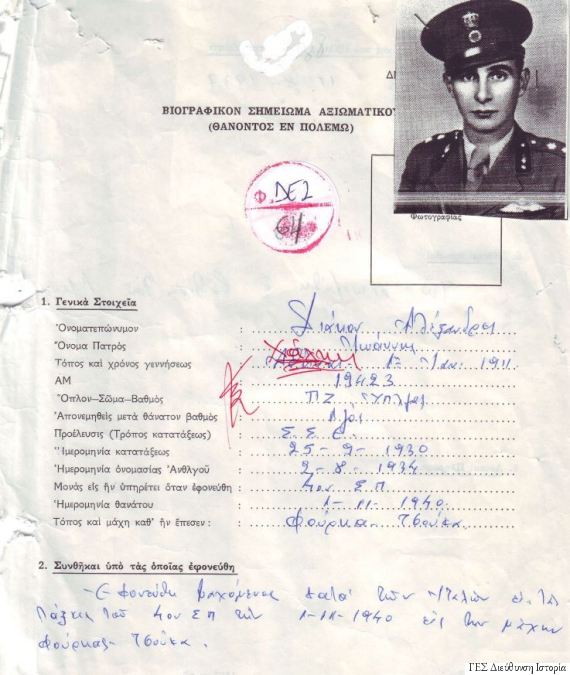 ΔΙ
ΒΙΟΓΡΑΦΙΚΟΝ ΣΗΜΕΙΩΜΑ ΑΞΙΩΜΑΤΙΚΟΥ
(ΘΑΝΟΝΤΟΣ ΕΝ ΠΟΛΕΜΩ)
Φ. ΔΕ2
64
Φωτογραφίας
1. Γενικὰ Στοιχεῖα
Ὀνοματεπώνυμον : Διάκου Αλέξανδρος
Ὄνομα Πατρὸς : Ιωάννης
Τόπος καὶ χρόνος γεννήσεως : Χάλκη 1911
ΑΜ : 19423
Ὅπλον-Σῶμα-Βαθμὸς : ΠΖ Υπλγος
Ἀπονεμηθεὶς μετὰ θάνατον βαθμὸς : Λγος
Προέλευσις (Τρόπος κατατάξεως) : Σ.Σ.Ε.
Ἡμερομηνία κατατάξεως : 25-9-1930
Ἡμερομηνία ὀνομασίας Ἀνθλγοῦ : 2-8-1934
Μονὰς εἰς ἣν ὑπηρέτει ὅταν ἐφονεύθη : 4ον Σ.Π.
Ἡμερομηνία θανάτου : 1-11-1940
Τόπος καὶ μάχη καθ' ἣν ἔπεσεν : Φούρκα - Τσούκα
2. Συνθῆκαι ὑπὸ τὰς ὁποίας ἐφονεύθη
- Εφονεύθη μαχόμενος κατά των Ιταλών εις τας
τάξεις του 4ου ΣΠ την 1-11-1940 εις την μάχην
Φούρκας - Τσούκα.
ΓΕΣ Διεύθυνση Ιστορία